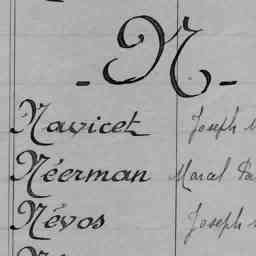 - N -
Navicet Joseph
Néerman Marcel
Névos Joseph